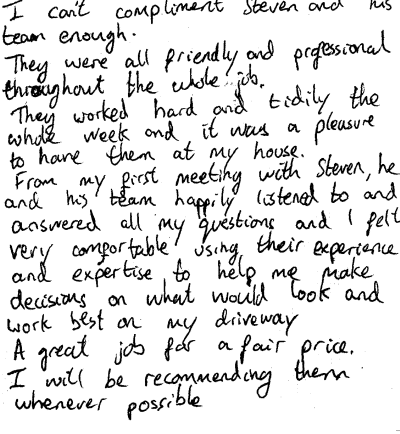 I can't compliment Steven and his
team enough.
They were all friendly and professional
throughout the whole job.
They worked hard and tidily the
whole week and it was a pleasure
to have them at my house.
From my first meeting with Steven, he
and his team happily listened to and
answered all my questions and I felt
very comfortable using their experience
and expertise to help me make
decisions on what would look and
work best on my driveway
A great job for a fair price.
I will be recommending them
whenever possible